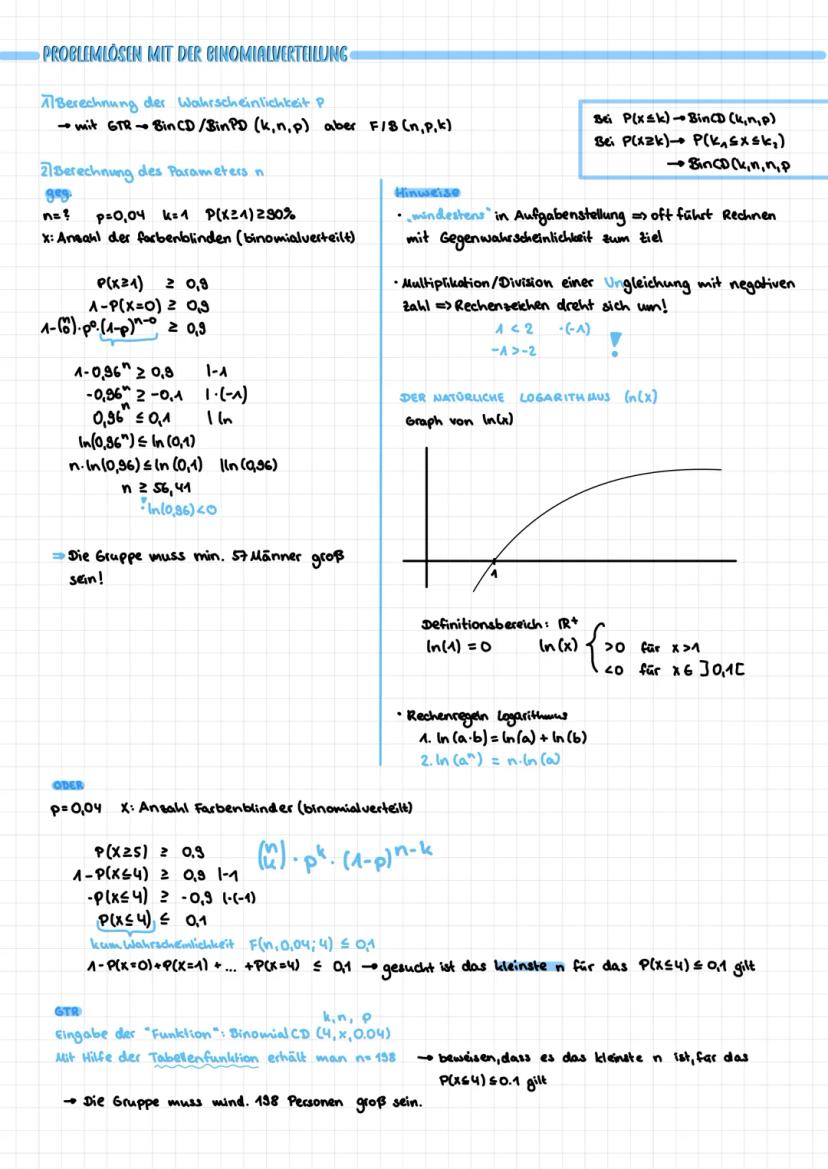 PROBLEMLÖSEN MIT DER BINOMIALVERTEILUNG
1) Berechnung der Wahrscheinlichkeit P
→ mit GTR → BinCD/BinPD (k,n,p) aber F/B (n,p,k)
Bei P(X≤k) → BinCD (k,n,p)
Bei P(X≥k) → P(k₁≤X≤k₂)
→ BinCD(k,n,n,p
2) Berechnung des Parameters n
geg.
n=? p=0,04 k=1 P(X≥1)≥90%
X: Anzahl der farbenblinden (binomialverteilt)
P(X≥1) ≥ 0,9
1-P(X=0) ≥ 0,9
1-(n 0)·p⁰·(1-p)ⁿ⁻⁰ ≥ 0,9
1-0,96ⁿ ≥ 0,9 |-1
-0,96ⁿ ≥ -0,1 |·(-1)
0,96ⁿ ≤ 0,1 | ln
ln(0,96ⁿ) ≤ ln(0,1)
n·ln(0,96) ≤ ln(0,1) |ln(0,96)
n ≥ 56,41
! ln(0,96)<0
⇒ Die Gruppe muss min. 57 Männer groß
sein!
Hinweise
• „mindestens" in Aufgabenstellung ⇒ oft führt Rechnen
mit Gegenwahrscheinlichkeit zum Ziel
• Multiplikation/Division einer Ungleichung mit negativen
Zahl ⇒ Rechenzeichen dreht sich um!
1 < 2 ·(-1)
-1 > -2 !
DER NATÜRLICHE LOGARITHMUS ln(x)
Graph von ln(x)
1
Definitionsbereich: ℝ⁺
ln(1) = 0 ln(x) { >0 für x>1
<0 für x ∈ ]0,1[
• Rechenregeln Logarithmus
1. ln(a·b) = ln(a) + ln(b)
2. ln(aⁿ) = n·ln(a)
ODER
p=0,04 X: Anzahl Farbenblinder (binomialverteilt)
P(X≥5) ≥ 0,9
(n k) · pᵏ · (1-p)ⁿ⁻ᵏ
1-P(X≤4) ≥ 0,9 |-1
-P(X≤4) ≥ -0,9 |·(-1)
P(X≤4) ≤ 0,1
kum. Wahrscheinlichkeit F(n, 0,04; 4) ≤ 0,1
1-P(X=0)+P(X=1) + ... +P(X=4) ≤ 0,1 → gesucht ist das kleinste n für das P(X≤4) ≤ 0,1 gilt
GTR
k, n, p
Eingabe der "Funktion": BinomialCD (4,x,0.04)
Mit Hilfe der Tabellenfunktion erhält man n=198 → beweisen, dass es das kleinste n ist, für das
P(X≤4) ≤ 0.1 gilt
→ Die Gruppe muss mind. 198 Personen groß sein.